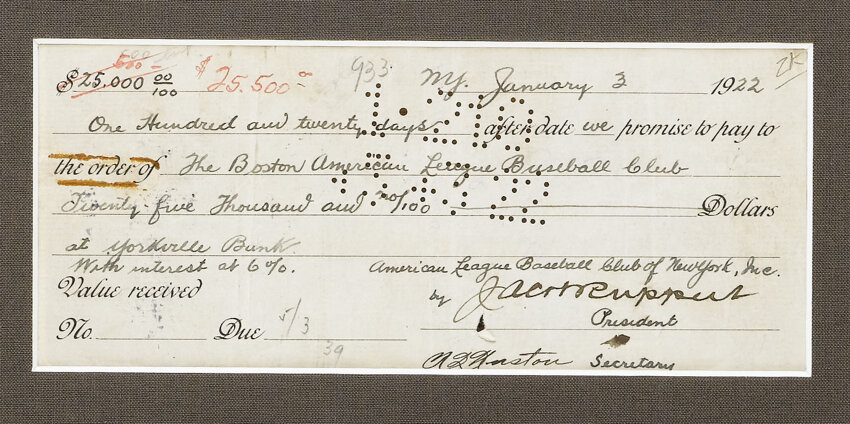 $25.000 00/100 $25.500 00 933 N.Y. January 3 1922 JK
One Hundred and twenty days after date we promise to pay to
the order of The Boston American League Baseball Club
Twenty-five Thousand and no/100 Dollars
at Yorkville Bank
With interest at 6%. American League Baseball Club of New York, Inc.
Value received by Jacob Ruppert
President
No. Due 5/3
39
Secretary